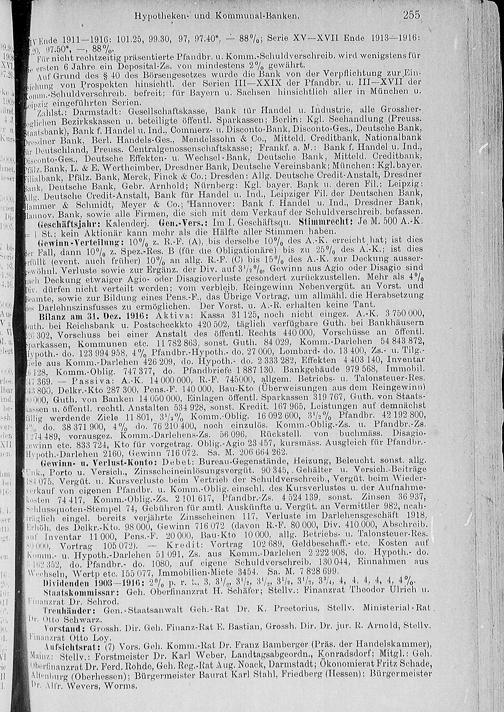 Hypotheken- und Kommunal-Banken. 255
IV Ende 1911—1916: 101.25, 99.30, 97, 97.40*, — 88%; Serie XV—XVII Ende 1913—1916:
97.50*, —, 88%.
Für nicht rechtzeitig präsentierte Pfandbr. u. Komm.-Schuldverschreib. wird wenigstens für
ersten 6 Jahre ein Deposital-Zs. von mindestens 2% gewährt.
Auf Grund des § 40 des Börsengesetzes wurde die Bank von der Verpflichtung zur Ein-
ichung von Prospekten hinsichtl. der Serien III—XXIX der Pfandbr. u. III—XVII der
omm.-Schuldverschreib. befreit; für Bayern u. Sachsen hinsichtlich aller in München u.
eipzig eingeführten Serien.
Zahlst.: Darmstadt: Gesellschaftskasse, Bank für Handel u. Industrie, alle Grossher-
oglichen Bezirkskassen u. beteiligte öffentl. Sparkassen; Berlin: Kgl. Seehandlung (Preuss.
taatsbank), Bank f. Handel u. Ind., Commerz- u. Disconto-Bank, Disconto-Ges., Deutsche Bank,
resdner Bank, Berl. Handels-Ges., Mendelssohn & Co., Mitteld. Creditbank, Nationalbank
r Deutschland, Preuss. Centralgenossenschaftskasse; Frankf. a. M.: Bank f. Handel u. Ind.,
isconto-Ges., Deutsche Effekten- u. Wechsel-Bank, Deutsche Bank, Mitteld. Creditbank,
fälz. Bank, L. & E. Wertheimber, Dresdner Bank, Deutsche Vereinsbank; München: Kgl. bayer.
ilialbank, Pfälz. Bank, Merck, Finck & Co.; Dresden: Allg. Deutsche Credit-Anstalt, Dresdner
ank, Deutsche Bank, Gebr. Arnhold; Nürnberg: Kgl. bayer. Bank u. deren Fil.; Leipzig:
llg. Deutsche Credit-Anstalt, Bank für Handel u. Ind., Leipziger Fil. der Deutschen Bank,
ammer & Schmidt, Meyer & Co.; Hannover: Bank f. Handel u. Ind., Dresdner Bank,
annov. Bank, sowie alle Firmen, die sich mit dem Verkauf der Schuldverschreib. befassen.
Geschäftsjahr: Kalenderj. Gen.-Vers.: Im I. Geschäftsqu. Stimmrecht: Je M. 500 A.-K.
1 St.; kein Aktionär kann mehr als die Hälfte aller Stimmen haben.
Gewinn-Verteilung: 10% z. R.-F. (A), bis derselbe 10% des A.-K. erreicht hat; ist dies
er Fall, dann 10% z. Spez.-Res. B (für die Obligationäre) bis zu 25% des A.-K.; ist dies
rfüllt (event. auch früher) 10% an allg. R.-F. (C) bis 15% des A.-K. zur Deckung ausser-
ewöhnl. Verluste sowie zur Ergänz. der Div. auf 3½%. Gewinn aus Agio oder Disagio sind
ach Deckung etwaiger Agio- oder Disagioverluste gesondert zurückzustellen. Mehr als 4%
iv. dürfen nicht verteilt werden; vom verbleib. Reingewinn Nebenvergüt. an Vorst. u.
eamte, sowie zur Bildung eines Pens.-F., das Übrige Vortrag, um allmähl. die Herabsetzung
es Darlehnszinsfusses zu ermöglichen. Der Vorst. u. A.-R. erhalten keine Tant.
Bilanz am 31. Dez. 1916: Aktiva: Kassa 31 125, noch nicht eingez. A.-K. 3 750 000,
uth. bei Reichsbank u. Postscheckkto 420 502, täglich verfügbare Guth. bei Bankhäusern
302, Vorschuss bei einer Anstalt des öffentl. Rechts 440 000, Vorschüsse an öffentl.
parkassen, Kommunen etc. 11 782 863, sonst. Guth. 84 029, Komm.-Darlehen 54 843 872,
ypoth.- do. 123 994 958, 4% Pfandbr.-Hypoth.- do. 27 000, Lombard- do. 13 400, Zs.- u. Tilg.-
iele aus Komm.-Darlehen 426 209, do. Hypoth.- do. 2 333 282, Effekten 4 403 140, Inventar
128, Komm.-Oblig. 747 367, do. Pfandbriefe 1 887 130. Bankgebäude 979 568, Immobil.
369. — Passiva: A.-K. 14 000 000, R.-F. 745 000, allgem. Betriebs- u. Talonsteuer-Res.
800, Delkr.-Kto 287 300, Pens.-F. 140 000, Bau-Kto (Überweisungen aus dem Reingewinn)
000, Guth. von Banken 14 050 000, Einlagen öffentl. Sparkassen 319 767, Guth. von Staats-
assen u. öffentl. rechtl. Anstalten 534 928, sonst. Kredit. 167 965, Leistungen auf demnächst
llig werdende Ziele 11 801, 3½% Komm.-Oblig. 16 092 600, 3½% Pfandbr. 42 192 800,
% do. 38 371 900, 4% do. 76 210 400, noch einzulös. Komm.-Oblig.-Zs. u. Pfandbr.-Zs.
274 489, vorausgez. Komm.-Darlehens-Zs. 56 096, Rückstell. von buchmäss. Disagio-
ewinn etc. 833 724, Kto für verloste Komm.-Oblig.-Agio 23 457, kursmäss. Ausgleich für Pfandbr.-
ypoth.-Darlehen 2160, Gewinn 716 072. Sa. M. 206 664 262.
Gewinn- u. Verlust-Konto: Debet: Bureau-Gegenstände, Heizung, Beleucht. sonst. allg.
nk., Porto u. Versich., Zinsscheineinlösungsvergüt. 90 345, Gehälter u. Versich.-Beiträge
84 075, Vergüt. u. Kursverluste beim Vertrieb der Schuldverschreib., Vergüt. beim Wieder-
erkauf von eigenen Pfandbr. u. Komm.-Oblig. einschl. des Kursverlustes u. der Aufnahme-
osten 74 417, Komm.-Oblig.-Zs. 2 101 617, Pfandbr.-Zs. 4 524 139, sonst. Zinsen 36 937,
chlussquoten-Stempel 74, Gebühren für amtl. Auskünfte u. Vergüt. an Vermittler 982, nach-
räglich eingel. bereits verjährte Zinsscheinen 117, Verluste im Darlehensgeschäft 1918,
rhöh. des Delkr.-Kto 98 000, Gewinn 716 072 (davon R.-F. 80 000, Div. 410 000, Abschreib.
uf Inventar 11 000, Pens.-F. 20 000, Bau-Kto 10 000, allg. Betriebs- u. Talonsteuer-Res.
000, Vortrag 105 072). — Kredit: Vortrag 102 689, Geldbeschaff.- etc. Kosten auf
omm.- u. Hypoth.-Darlehen 51 091, Zs. aus Komm.-Darlehen 2 222 908, do. Hypoth.- do.
162 352, do. Pfandbr.- do. 1080, auf eigene Schuldverschreib. 130 044, Einnahmen aus
Wechseln, Wertp. etc. 155 077, Immobilien-Miete 3454. Sa. M. 7 828 699.
Dividenden 1903—1916: 2% p. r. t., 3, 3½, 3½, 3½, 3½, 3½, 3¾, 4, 4, 4, 4, 4, 4%.
Staatskommissar: Geh. Oberfinanzrat H. Schäfer; Stellv.: Finanzrat Theodor Ulrich u.
Finanzrat Dr. Schrod.
Treuhänder: Gen.-Staatsanwalt Geh.-Rat Dr. K. Preetorius, Stellv. Ministerial-Rat
Dr. Otto Schwarz.
Vorstand: Grossh. Dir. Geh. Finanz-Rat E. Bastian, Gross. Dir. Dr. jur. R. Arnold, Stellv.
Finanzrat Otto Loy.
Aufsichtsrat: (7) Vors. Geh. Komm.-Rat Dr. Franz Bamberger (Präs. der Handelskammer),
Mainz; Stellv.: Forstmeister Dr. Karl Weber, Landtagsabgeordn., Konradsdorf; Mitgl.: Geh.
Oberfinanzrat Dr. Ferd. Rohde, Geh. Reg.-Rat Aug. Noack, Darmstadt; Ökonomierat Fritz Schade,
Altenburg (Oberhessen); Bürgermeister Baurat Karl Stahl, Friedberg (Hessen); Bürgermeister
Dr. Alfr. Wevers, Worms.